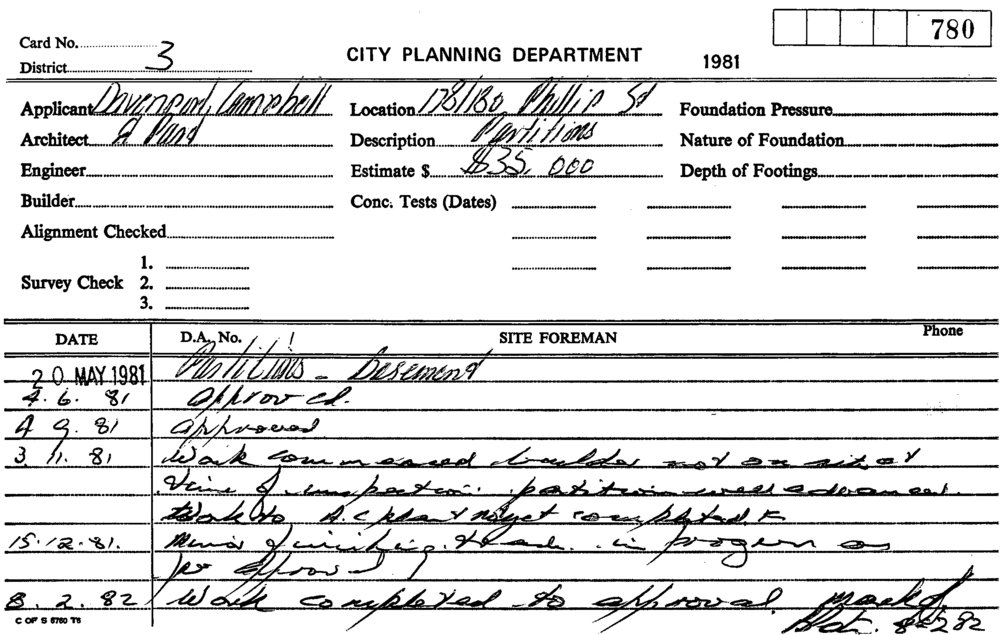 780
Card No.
District 3
CITY PLANNING DEPARTMENT 1981
Applicant Davenport, Campbell Location 178/180 Phillip St Foundation Pressure
Architect & Part Description Partitions Nature of Foundation
Engineer Estimate $ $35,000 Depth of Footings
Builder Conc. Tests (Dates)
Alignment Checked
1.
Survey Check 2.
3.
DATE D.A. No. SITE FOREMAN Phone
20 MAY 1981 Partitions - Basement
4. 6. 81 approved.
4 9. 81 approved
3. 11. 81 Work commenced builder not on site at
time of inspection. partition well advanced.
Work to A.C plant not yet completed
15.12.81. Minor finishing trade in progress as
per approval
8. 2. 82 Work completed to approval.
8-2 82
C OF S 8760 T5